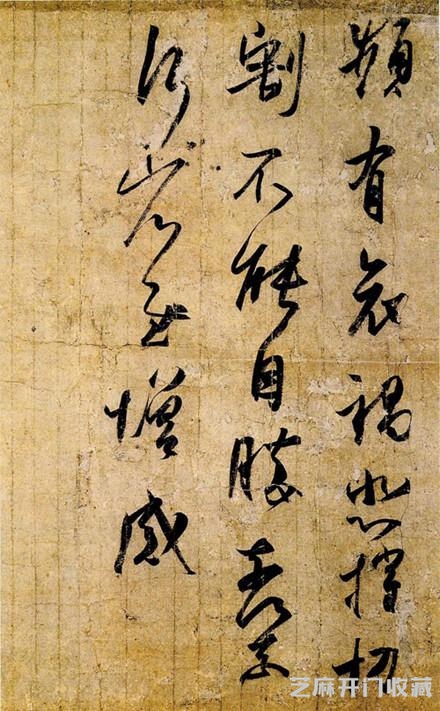 頻有哀禍悲摧切
割不能自勝奈何奈
何省慰增感
芝麻开门收藏